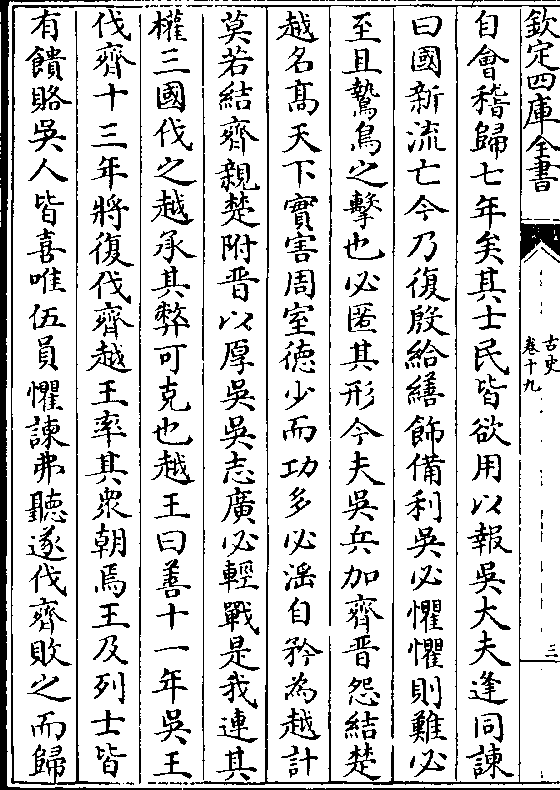 欽定四庫全書
古史
卷十九
三
自會稽歸七年矣其士民皆欲用以報吳大夫逢同諫
曰國新流亡今乃復殷給繕飾備利吳必懼懼則難必
至且鷙鳥之擊也必匿其形今夫吳兵加齊晉怨結楚
越名髙天下實害周室徳少而功多必滛自矜為越計
莫若結齊親楚附晋以厚吳吳志廣必輕戰是我連其
權三國伐之越承其弊可克也越王曰善十一年吳王
伐齊十三年將復伐齊越王率其衆朝焉王及列士皆
有饋賂吳人皆喜唯伍員懼諫弗聽遂伐齊敗之而歸